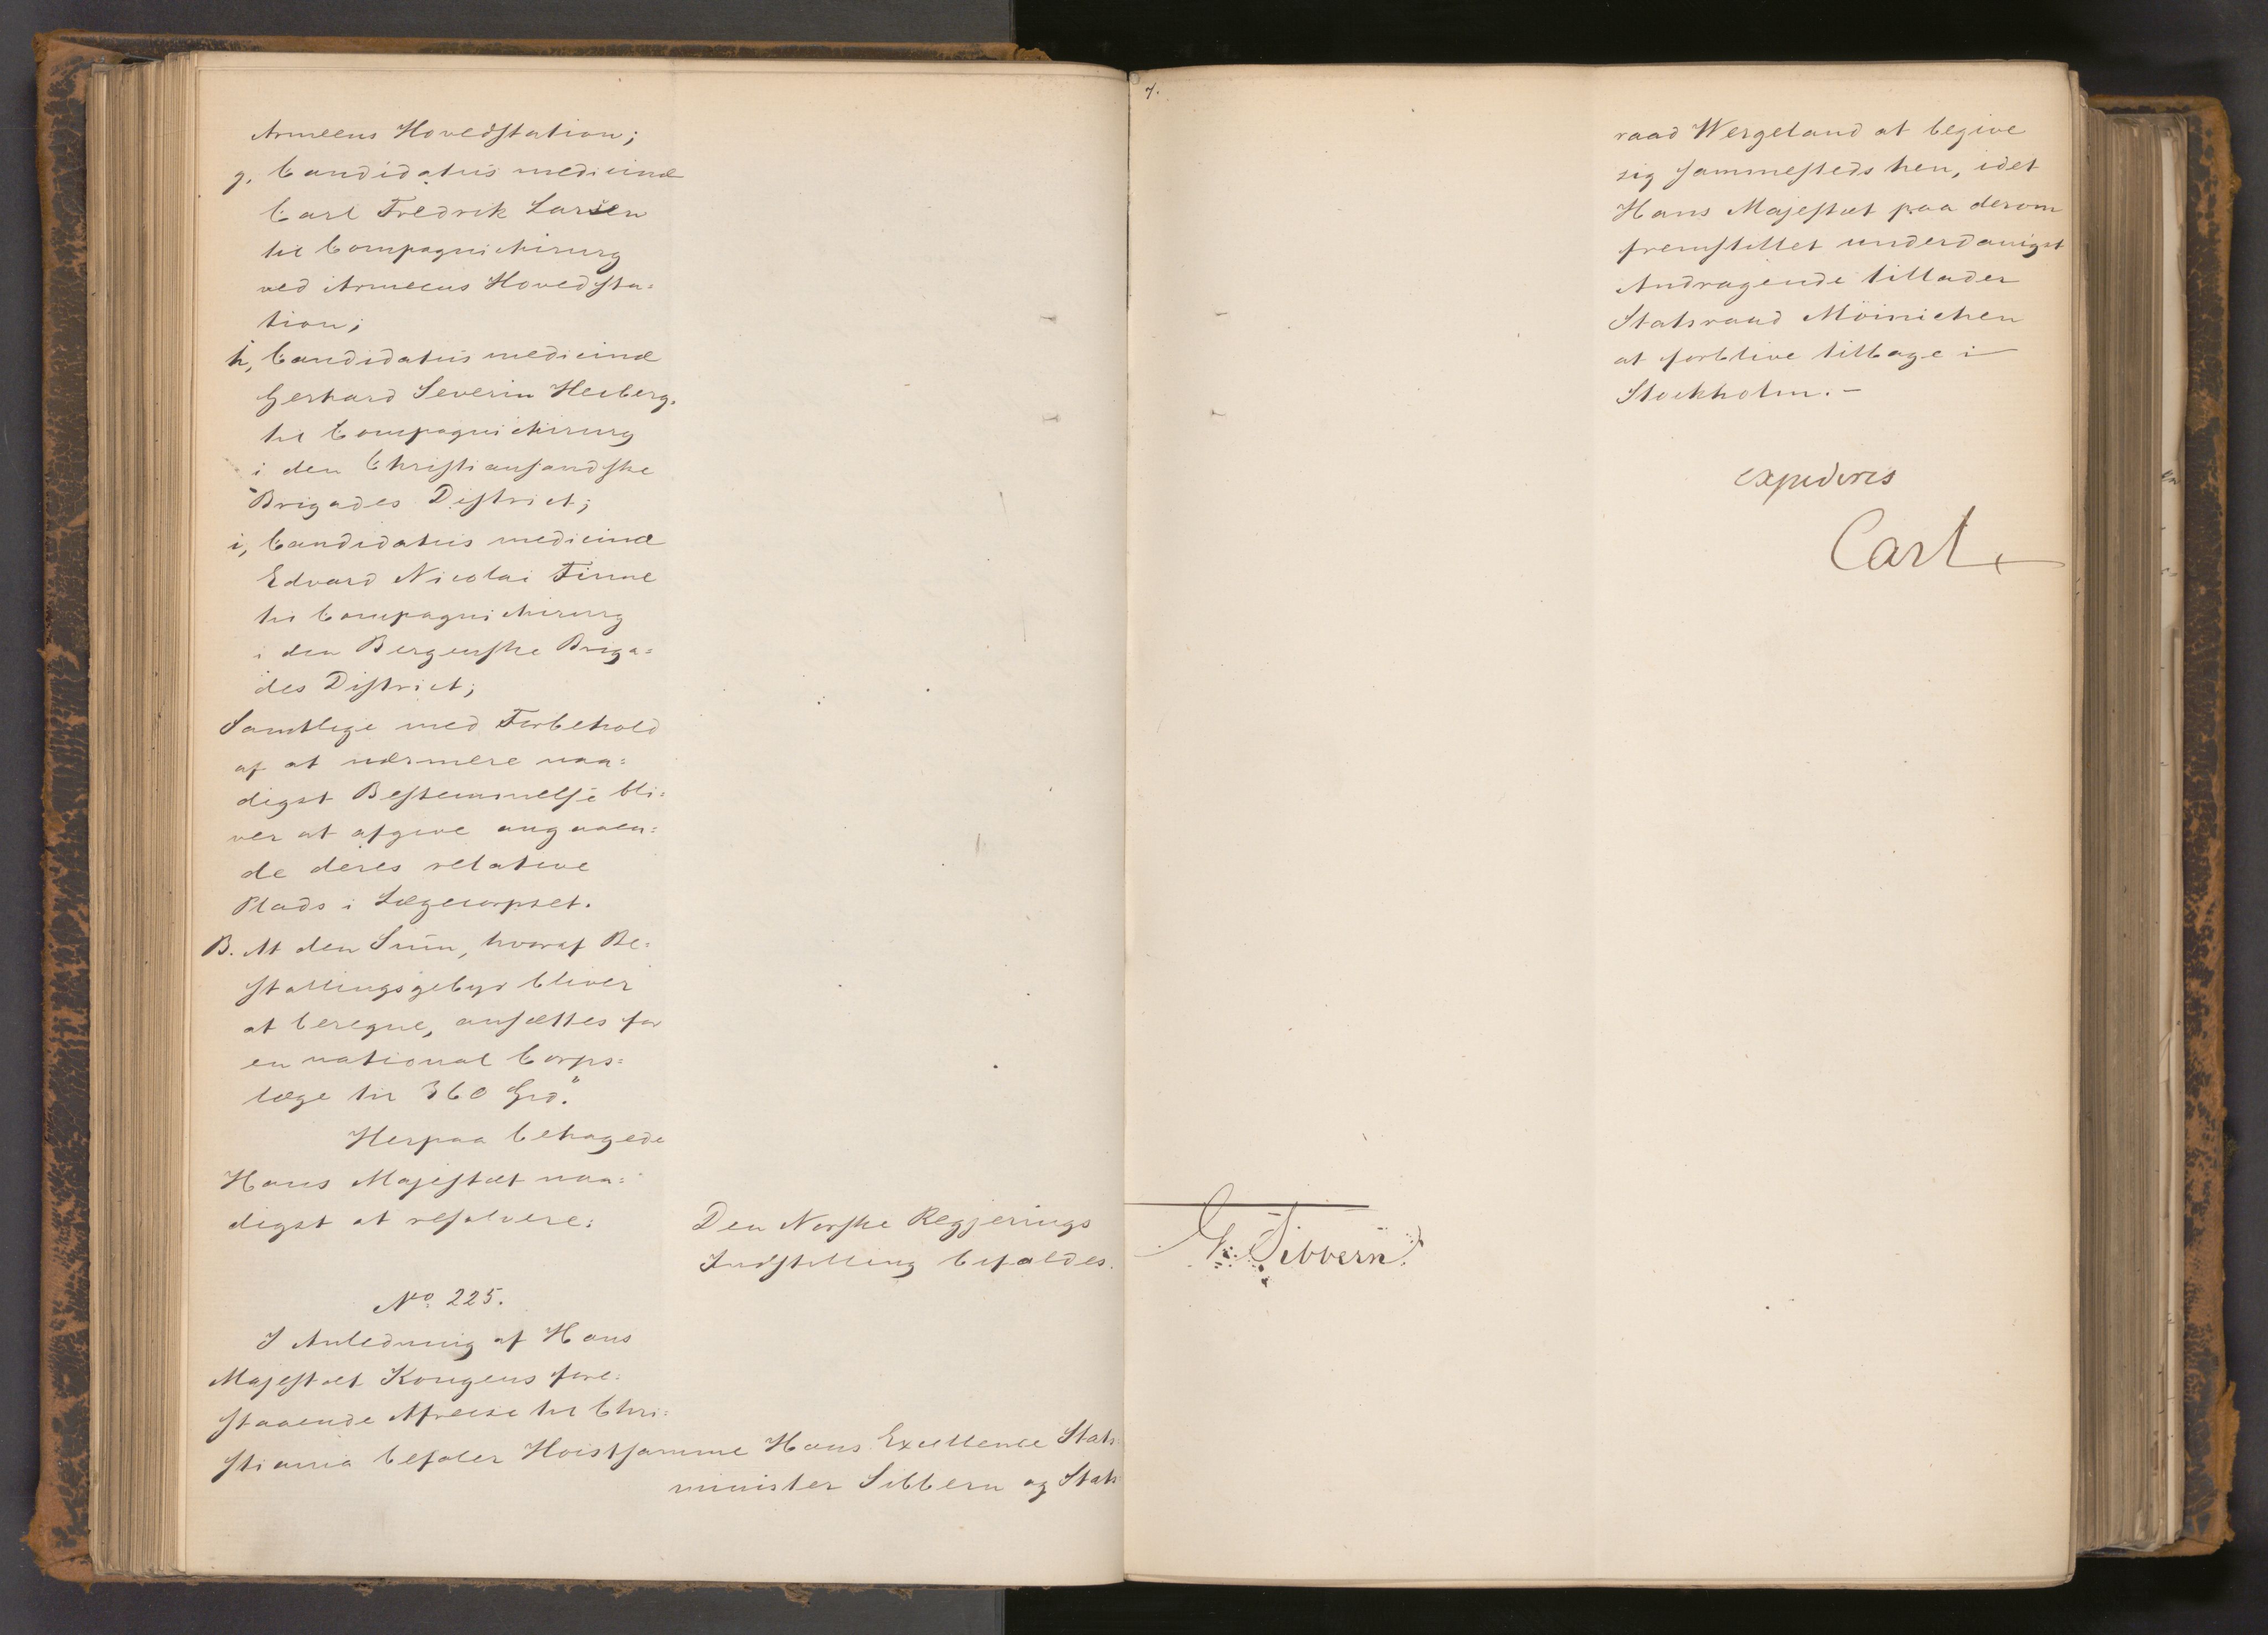 Armeens Hovedstation;
g, Candidatus medicinæ
Carl Fredrik Larsen
til Compagnichirurg
ved Armeens Hovedsta=
tion;
h, Candidatus medicinæ
Gerhard Severin Heiberg.
til Compagnichirurg
i den Christiansandske
Brigades District;
i, Candidatus medicinæ
Edvard Nicolai Finne
til Compagnichirurg
i den Bergenske Briga=
des District;
Samtlige med Forbehold
af at nærmere naa=
digst Bestemmelse bli=
ver at afgive angaaen=
de deres relative
Plads i Lægecorpset.
B. At den Sum, hvoraf Be=
stallingsgebyr bliver
at beregne, ansættes for
en national Corps=
læge til 360 Spd."
Herpaa behagede
Hans Majestæt naa=
digst at resolvere:
Den Norske Regjerings
Indstilling bifaldes.
G. Sibbern
No. 225.
I Anledning af Hans
Majestæt Kongens fore=
staaende Afreise til Chri=
stiania befaler Høistsamme Hans Excellence Stats=
minister Sibbern og Stats
7.
raad Wergeland at begive
sig sammesteds hen, idet
Hans Majestæt paa derom
fremstillet underdanigst
Andragende tillader
Statsraad Möinichen
at forblive tilbage i
Stockholm. –
expederes
Carl